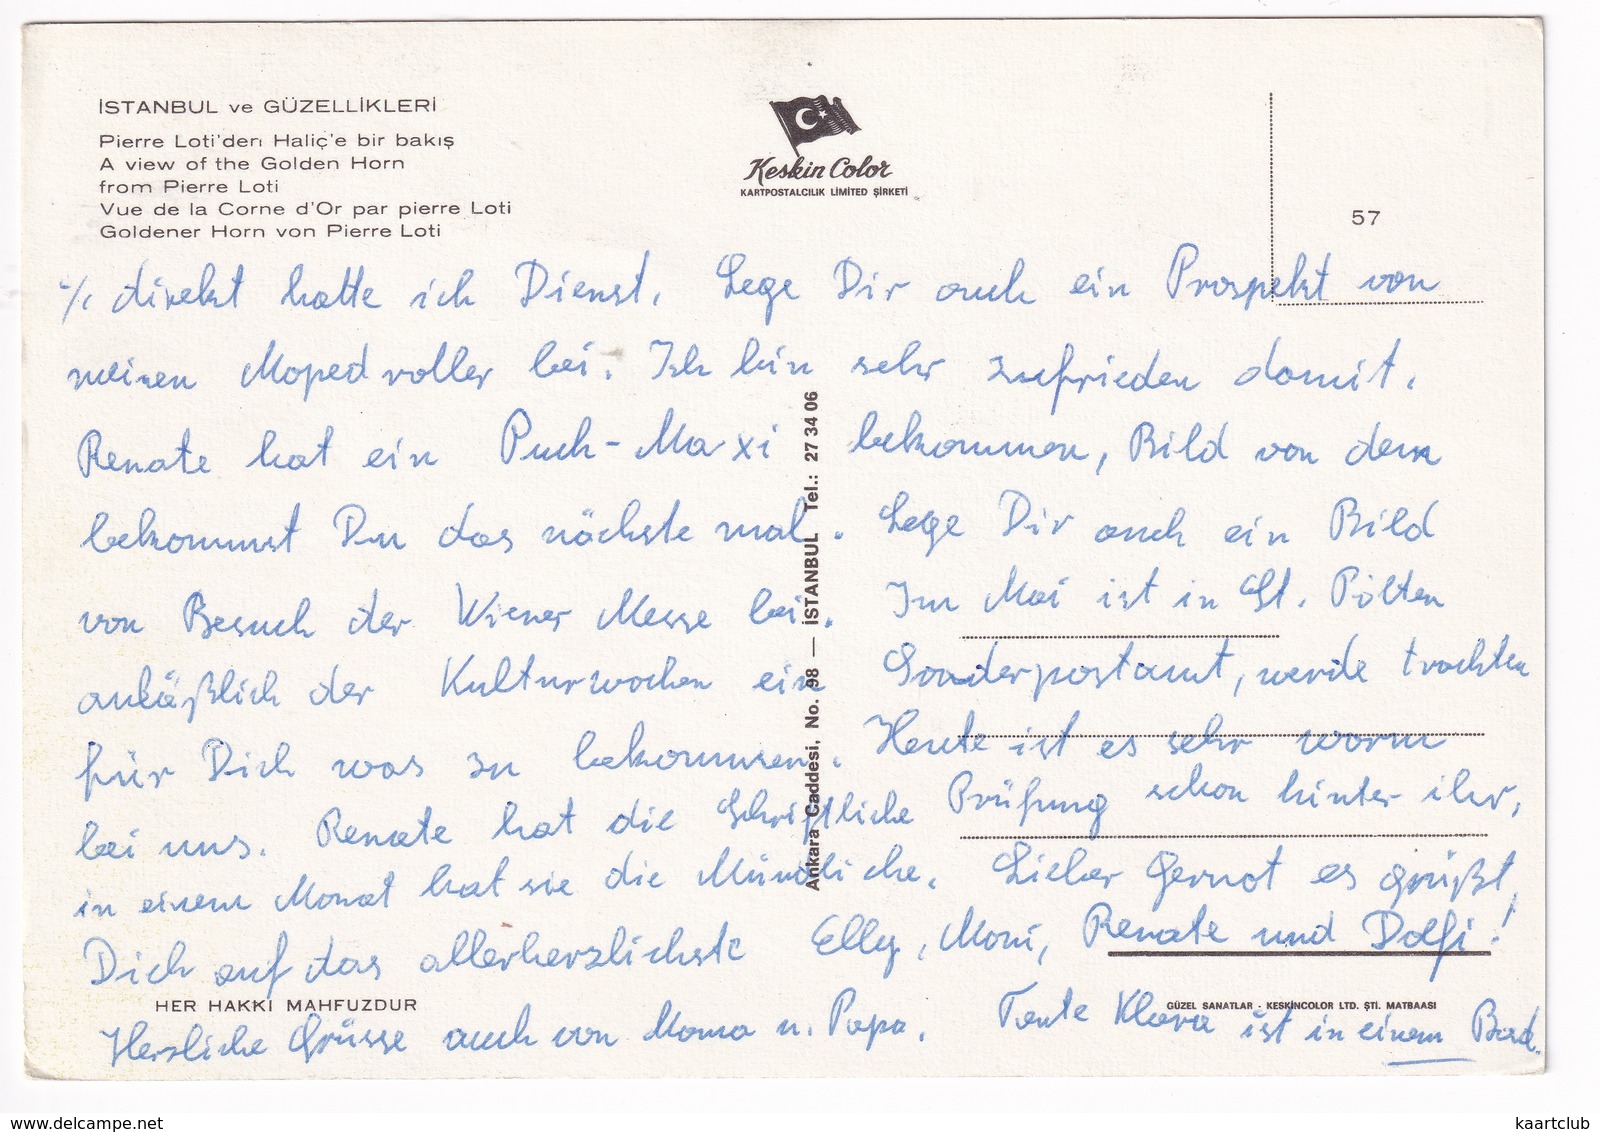 İSTANBUL ve GÜZELLİKLERİ
Pierre Loti'den Haliç'e bir bakış
A view of the Golden Horn
from Pierre Loti
Vue de la Corne d'Or par pierre Loti
Goldener Horn von Pierre Loti
Keskin Color
KARTPOSTALCILIK LİMİTED ŞİRKETİ
57
./. direkt hatte ich Dienst. Lege Dir auch ein Prospekt von
meinen Mopedroller bei. Ich bin sehr zufrieden damit.
Renate hat ein Puch-Maxi bekommen, Bild von dem
bekommst Du das nächste mal. Lege Dir auch ein Bild
von Besuch der Wiener Messe bei. Im Mai ist in St. Pölten
anläßlich der Kulturwochen ein Sonderpostamt, werde trachten
für Dich was zu bekommen. Heute ist es sehr warm
bei uns. Renate hat die Schriftliche Prüfung schon hinter ihr,
in einem Monat hat sie die Mündliche. Lieber Gernot es grüßt
Dich auf das allerherzlichste Elly, Moni, Renate und Dolfi!
Herzliche Grüsse auch von Mama u. Papa. Tante Klara ist in einem Bad.
Ankara Caddesi, No. 98 — İSTANBUL Tel.: 27 34 06
HER HAKKI MAHFUZDUR
GÜZEL SANATLAR - KESKİNCOLOR LTD. ŞTİ. MATBAASI
www.delcampe.net
kaartclub